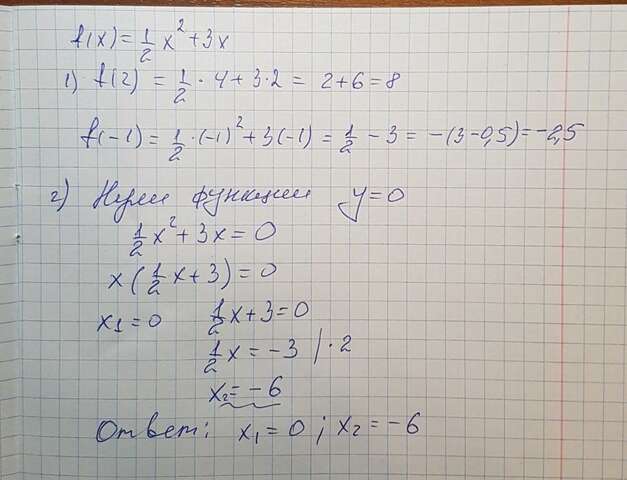 f(x) = 1/2 x² + 3x
1) f(2) = 1/2 · 4 + 3·2 = 2+6 = 8
f(-1) = 1/2 · (-1)² + 3(-1) = 1/2 - 3 = -(3-0,5) = -2,5
2) Нули функции y=0
1/2 x² + 3x = 0
x(1/2 x + 3) = 0
x₁ = 0 1/2 x + 3 = 0
1/2 x = -3 / · 2
x₂ = -6
Ответ: x₁ = 0 ; x₂ = -6